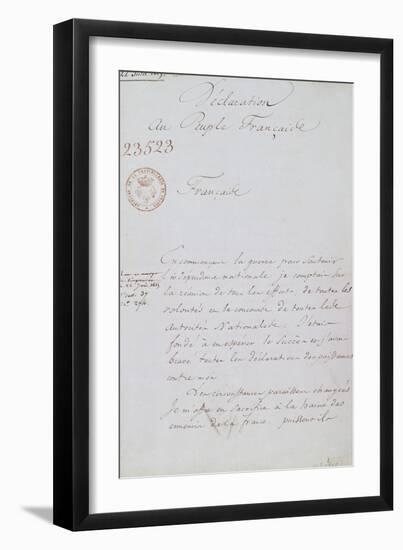 Déclaration
Au Peuple Française
23523
Française
En commençant la guerre pour soutenir
l'indépendance nationale je comptais sur
la réunion de tous les efforts de toutes les
volontés et le concours de toutes les
autorités Nationales. J'étais
fondé à en esperer le succès et j'avais
bravé toutes les déclarations des puissances
contre moi
Les circonstances paraissent changées
Je m'offre en sacrifice à la haine des
ennemis de la france. puissent-ils